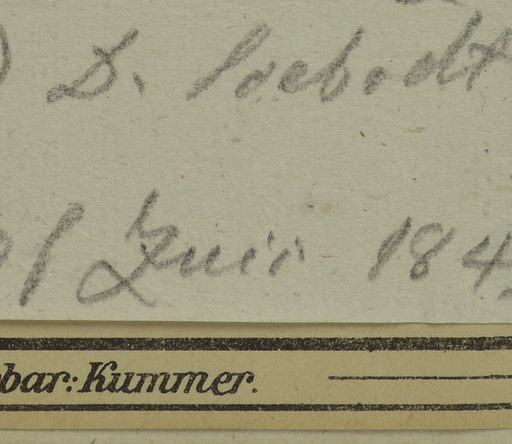 D. loebodt
Juni 184
bar: Kummer.